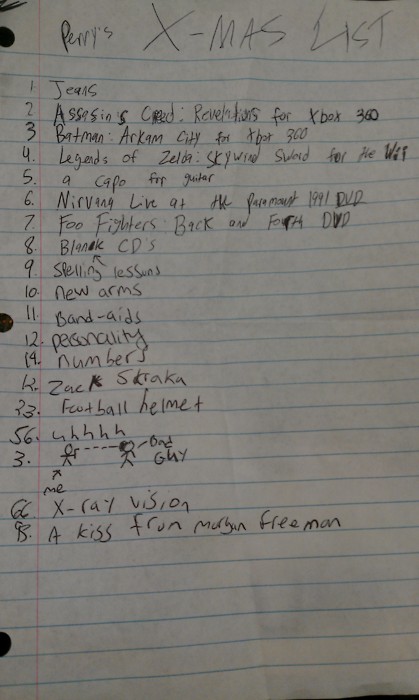 Perry's X-MAS LIST
1. Jeans
2 Assasin's Creed: Revelations for Xbox 360
3 Batman: Arkam City for Xbox 360
4. Legends of Zelda: Skywind Sword for the Wii
5. a capo for guitar
6. Nirvana Live at the Paramount 1991 DVD
7. Foo Fighters: Back and Fourth DVD
8. Blank CD's
9. Spelling lessons
10. new arms
11. Band-aids
12. personality
14. numbers
12. Zack Skraka
33. Football helmet
56. uhhhh
3. Bad
GUY
me
66 X-ray vision
98. A kiss from morgan freeman